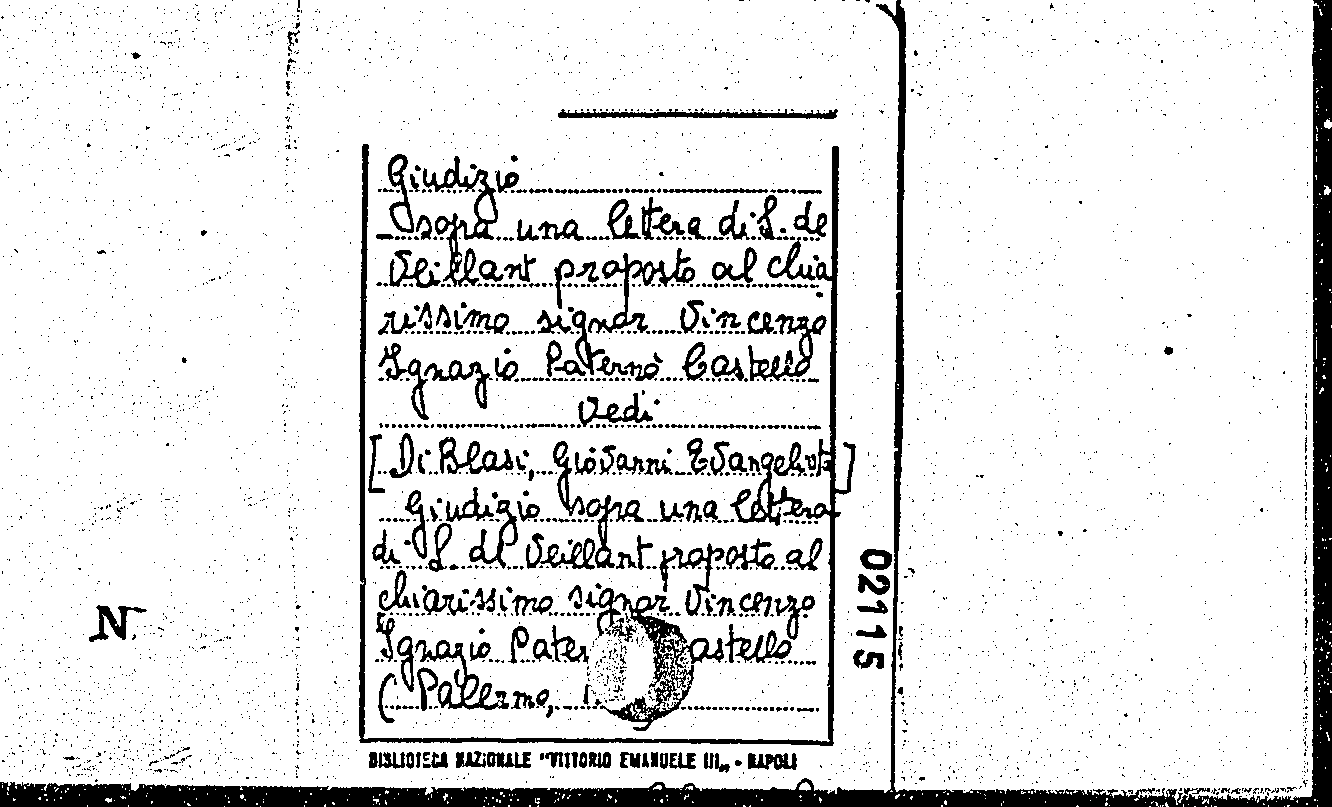 Giudizio
sopra una lettera di S. de
Veillant proposto al chia
rissimo signor Vincenzo
Ignazio Paternò Castello
Vedi
[Di Blasi, Giovanni Evangelista]
Giudizio sopra una lettera
di S. de Veillant proposto al
chiarissimo signor Vincenzo
Ignazio Pater astello
(Palermo,
BIBLIOTECA NAZIONALE "VITTORIO EMANUELE III„ - NAPOLI
02115
N